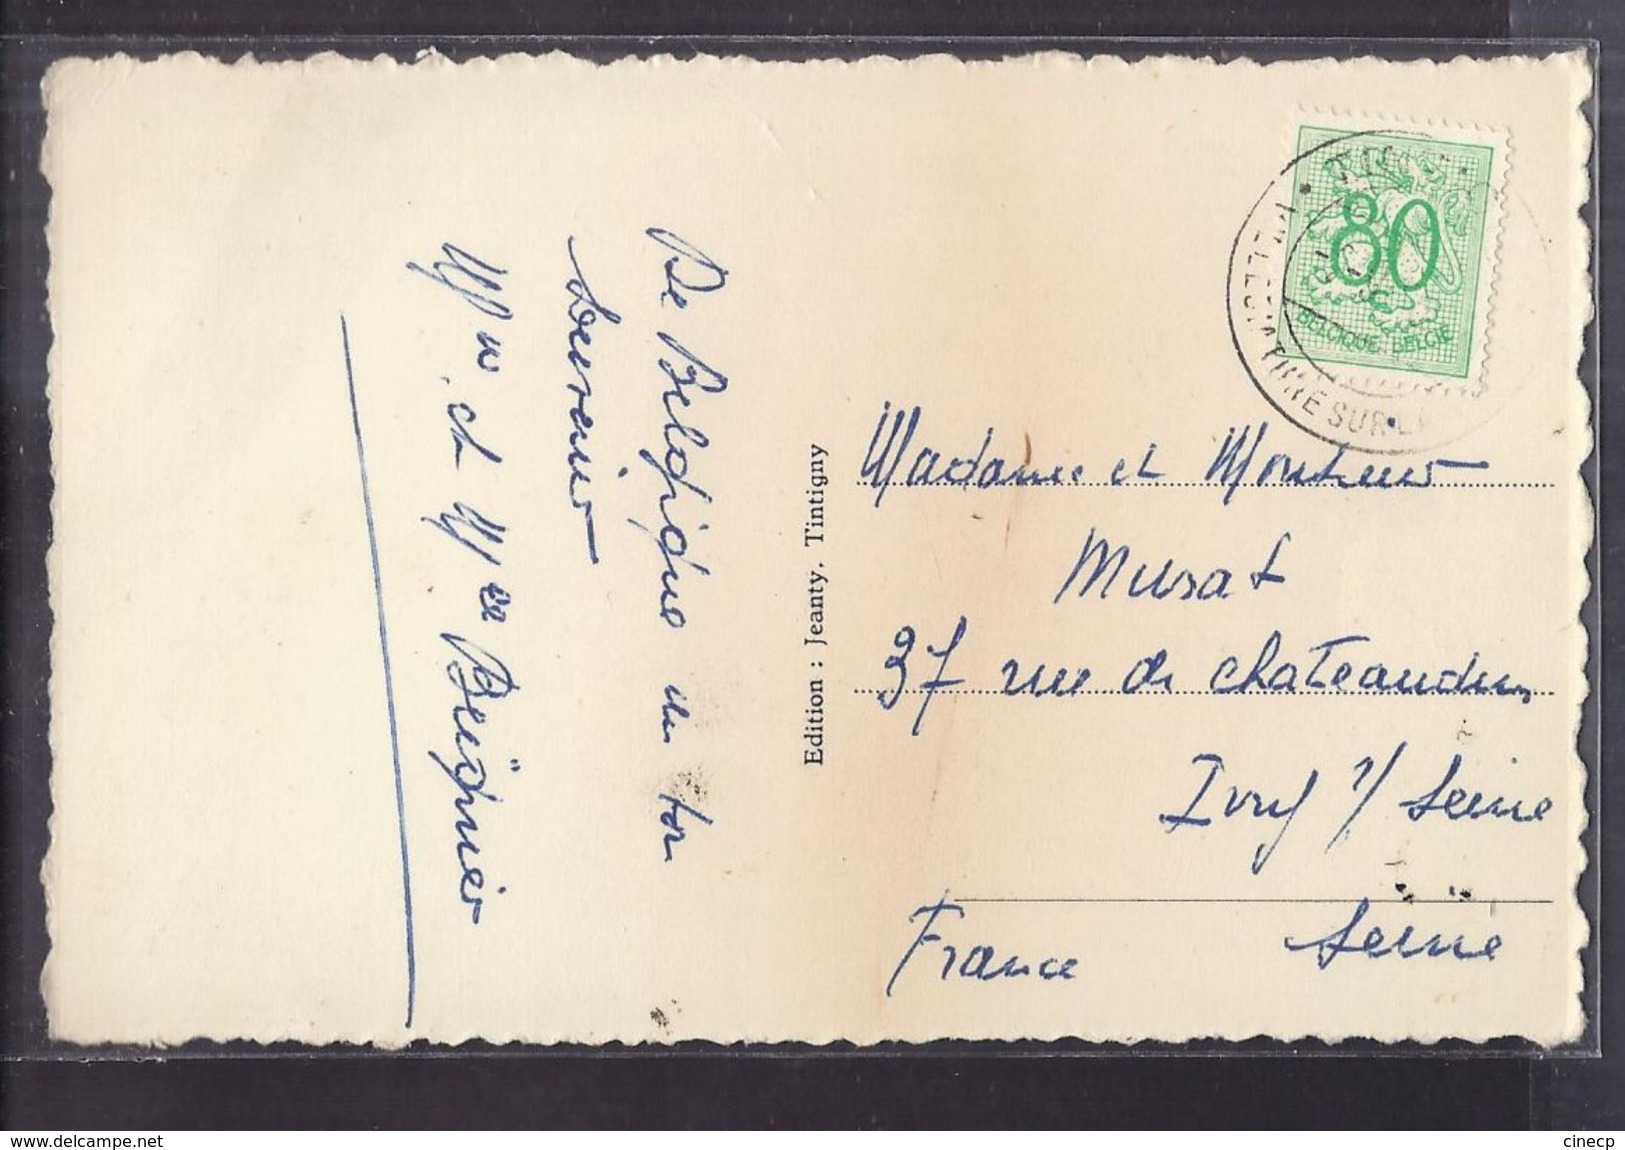 De Belgique un bon
souvenir
Mr et Mme Beignier
Edition : Jeanty. Tintigny
80
BELGIQUE-BELGIE
SUR
Madame et Monsieur
Murat
37 rue de chateaudun
Ivry s/ Seine
Seine
France
www.delcampe.net
cinecp